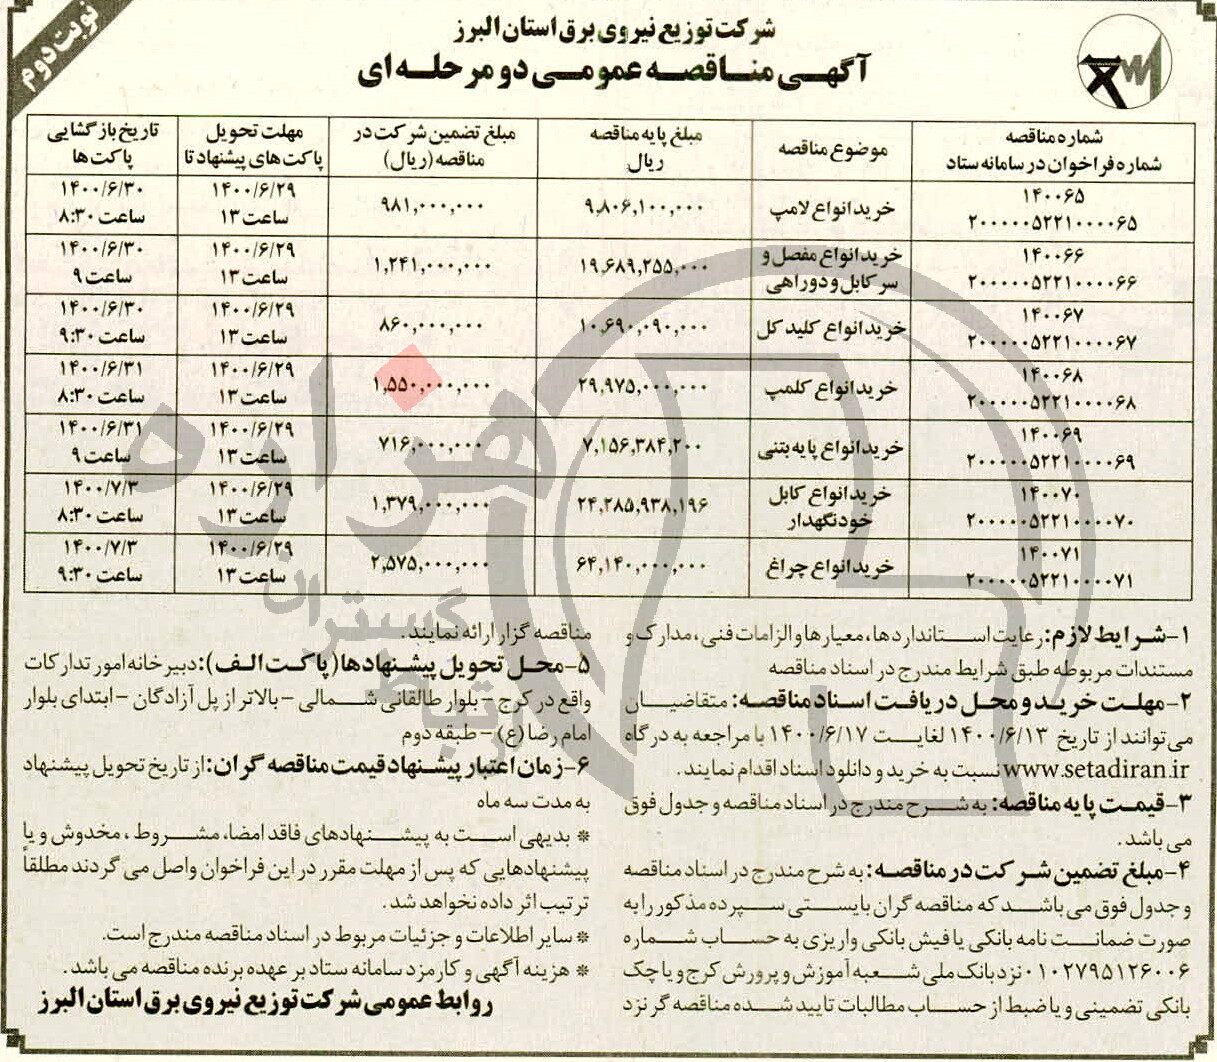 نوبت دوم
شرکت توزیع نیروی برق استان البرز
آگهی مناقصه عمومی دو مرحله ای
شماره مناقصه شماره فراخوان در سامانه ستاد | موضوع مناقصه | مبلغ پایه مناقصه ریال | مبلغ تضمین شرکت در مناقصه (ریال) | مهلت تحویل پاکت های پیشنهاد تا | تاریخ بازگشایی پاکت ها
۱۴۰۰۶۵ ۲۰۰۰۰۰۵۲۲۱۰۰۰۰۶۵ | خرید انواع لامپ | ۹,۸۰۶,۱۰۰,۰۰۰ | ۹۸۱,۰۰۰,۰۰۰ | ۱۴۰۰/۶/۲۹ ساعت ۱۳ | ۱۴۰۰/۶/۳۰ ساعت ۸:۳۰
۱۴۰۰۶۶ ۲۰۰۰۰۰۵۲۲۱۰۰۰۰۶۶ | خرید انواع مفصل و سر کابل و دوراهی | ۱۹,۶۸۹,۲۵۵,۰۰۰ | ۱,۲۴۱,۰۰۰,۰۰۰ | ۱۴۰۰/۶/۲۹ ساعت ۱۳ | ۱۴۰۰/۶/۳۰ ساعت ۹
۱۴۰۰۶۷ ۲۰۰۰۰۰۵۲۲۱۰۰۰۰۶۷ | خرید انواع کلید کل | ۱۰,۶۹۰,۰۹۰,۰۰۰ | ۸۶۰,۰۰۰,۰۰۰ | ۱۴۰۰/۶/۲۹ ساعت ۱۳ | ۱۴۰۰/۶/۳۰ ساعت ۹:۳۰
۱۴۰۰۶۸ ۲۰۰۰۰۰۵۲۲۱۰۰۰۰۶۸ | خرید انواع کلمپ | ۲۹,۹۷۵,۰۰۰,۰۰۰ | ۱,۵۵۰,۰۰۰,۰۰۰ | ۱۴۰۰/۶/۲۹ ساعت ۱۳ | ۱۴۰۰/۶/۳۱ ساعت ۸:۳۰
۱۴۰۰۶۹ ۲۰۰۰۰۰۵۲۲۱۰۰۰۰۶۹ | خرید انواع پایه بتنی | ۷,۱۵۶,۳۸۴,۲۰۰ | ۷۱۶,۰۰۰,۰۰۰ | ۱۴۰۰/۶/۲۹ ساعت ۱۳ | ۱۴۰۰/۶/۳۱ ساعت ۹
۱۴۰۰۷۰ ۲۰۰۰۰۰۵۲۲۱۰۰۰۰۷۰ | خرید انواع کابل خودنگهدار | ۲۴,۲۸۵,۹۳۸,۱۹۶ | ۱,۳۷۹,۰۰۰,۰۰۰ | ۱۴۰۰/۶/۲۹ ساعت ۱۳ | ۱۴۰۰/۷/۳ ساعت ۸:۳۰
۱۴۰۰۷۱ ۲۰۰۰۰۰۵۲۲۱۰۰۰۰۷۱ | خرید انواع چراغ | ۶۴,۱۴۰,۰۰۰,۰۰۰ | ۲,۵۷۵,۰۰۰,۰۰۰ | ۱۴۰۰/۶/۲۹ ساعت ۱۳ | ۱۴۰۰/۷/۳ ساعت ۹:۳۰
۱-شرایط لازم: رعایت استانداردها، معیارها و الزامات فنی، مدارک و
مستندات مربوطه طبق شرایط مندرج در اسناد مناقصه
۲-مهلت خرید و محل دریافت اسناد مناقصه: متقاضیان
می توانند از تاریخ ۱۴۰۰/۶/۱۳ لغایت ۱۴۰۰/۶/۱۷ با مراجعه به درگاه
www.setadiran.ir نسبت به خرید و دانلود اسناد اقدام نمایند.
۳-قیمت پایه مناقصه: به شرح مندرج در اسناد مناقصه و جدول فوق
می باشد.
۴-مبلغ تضمین شرکت در مناقصه: به شرح مندرج در اسناد مناقصه
و جدول فوق می باشد که مناقصه گران بایستی سپرده مذکور را به
صورت ضمانت نامه بانکی یا فیش بانکی واریزی به حساب شماره
۰۱۰۲۷۹۵۱۲۶۰۰۶ نزد بانک ملی شعبه آموزش و پرورش کرج و یا چک
بانکی تضمینی و یا ضبط از حساب مطالبات تایید شده مناقصه گر نزد
مناقصه گزار ارائه نمایند.
۵-محل تحویل پیشنهادها (پاکت الف): دبیرخانه امور تدارکات
واقع در کرج - بلوار طالقانی شمالی - بالاتر از پل آزادگان - ابتدای بلوار
امام رضا (ع) - طبقه دوم
۶-زمان اعتبار پیشنهاد قیمت مناقصه گران: از تاریخ تحویل پیشنهاد
به مدت سه ماه
* بدیهی است به پیشنهادهای فاقد امضا، مشروط، مخدوش و یا
پیشنهادهایی که پس از مهلت مقرر در این فراخوان واصل می گردند مطلقاً
ترتیب اثر داده نخواهد شد.
* سایر اطلاعات و جزئیات مربوط در اسناد مناقصه مندرج است.
* هزینه آگهی و کارمزد سامانه ستاد بر عهده برنده مناقصه می باشد.
روابط عمومی شرکت توزیع نیروی برق استان البرز
هزاره
ارتباط گستران